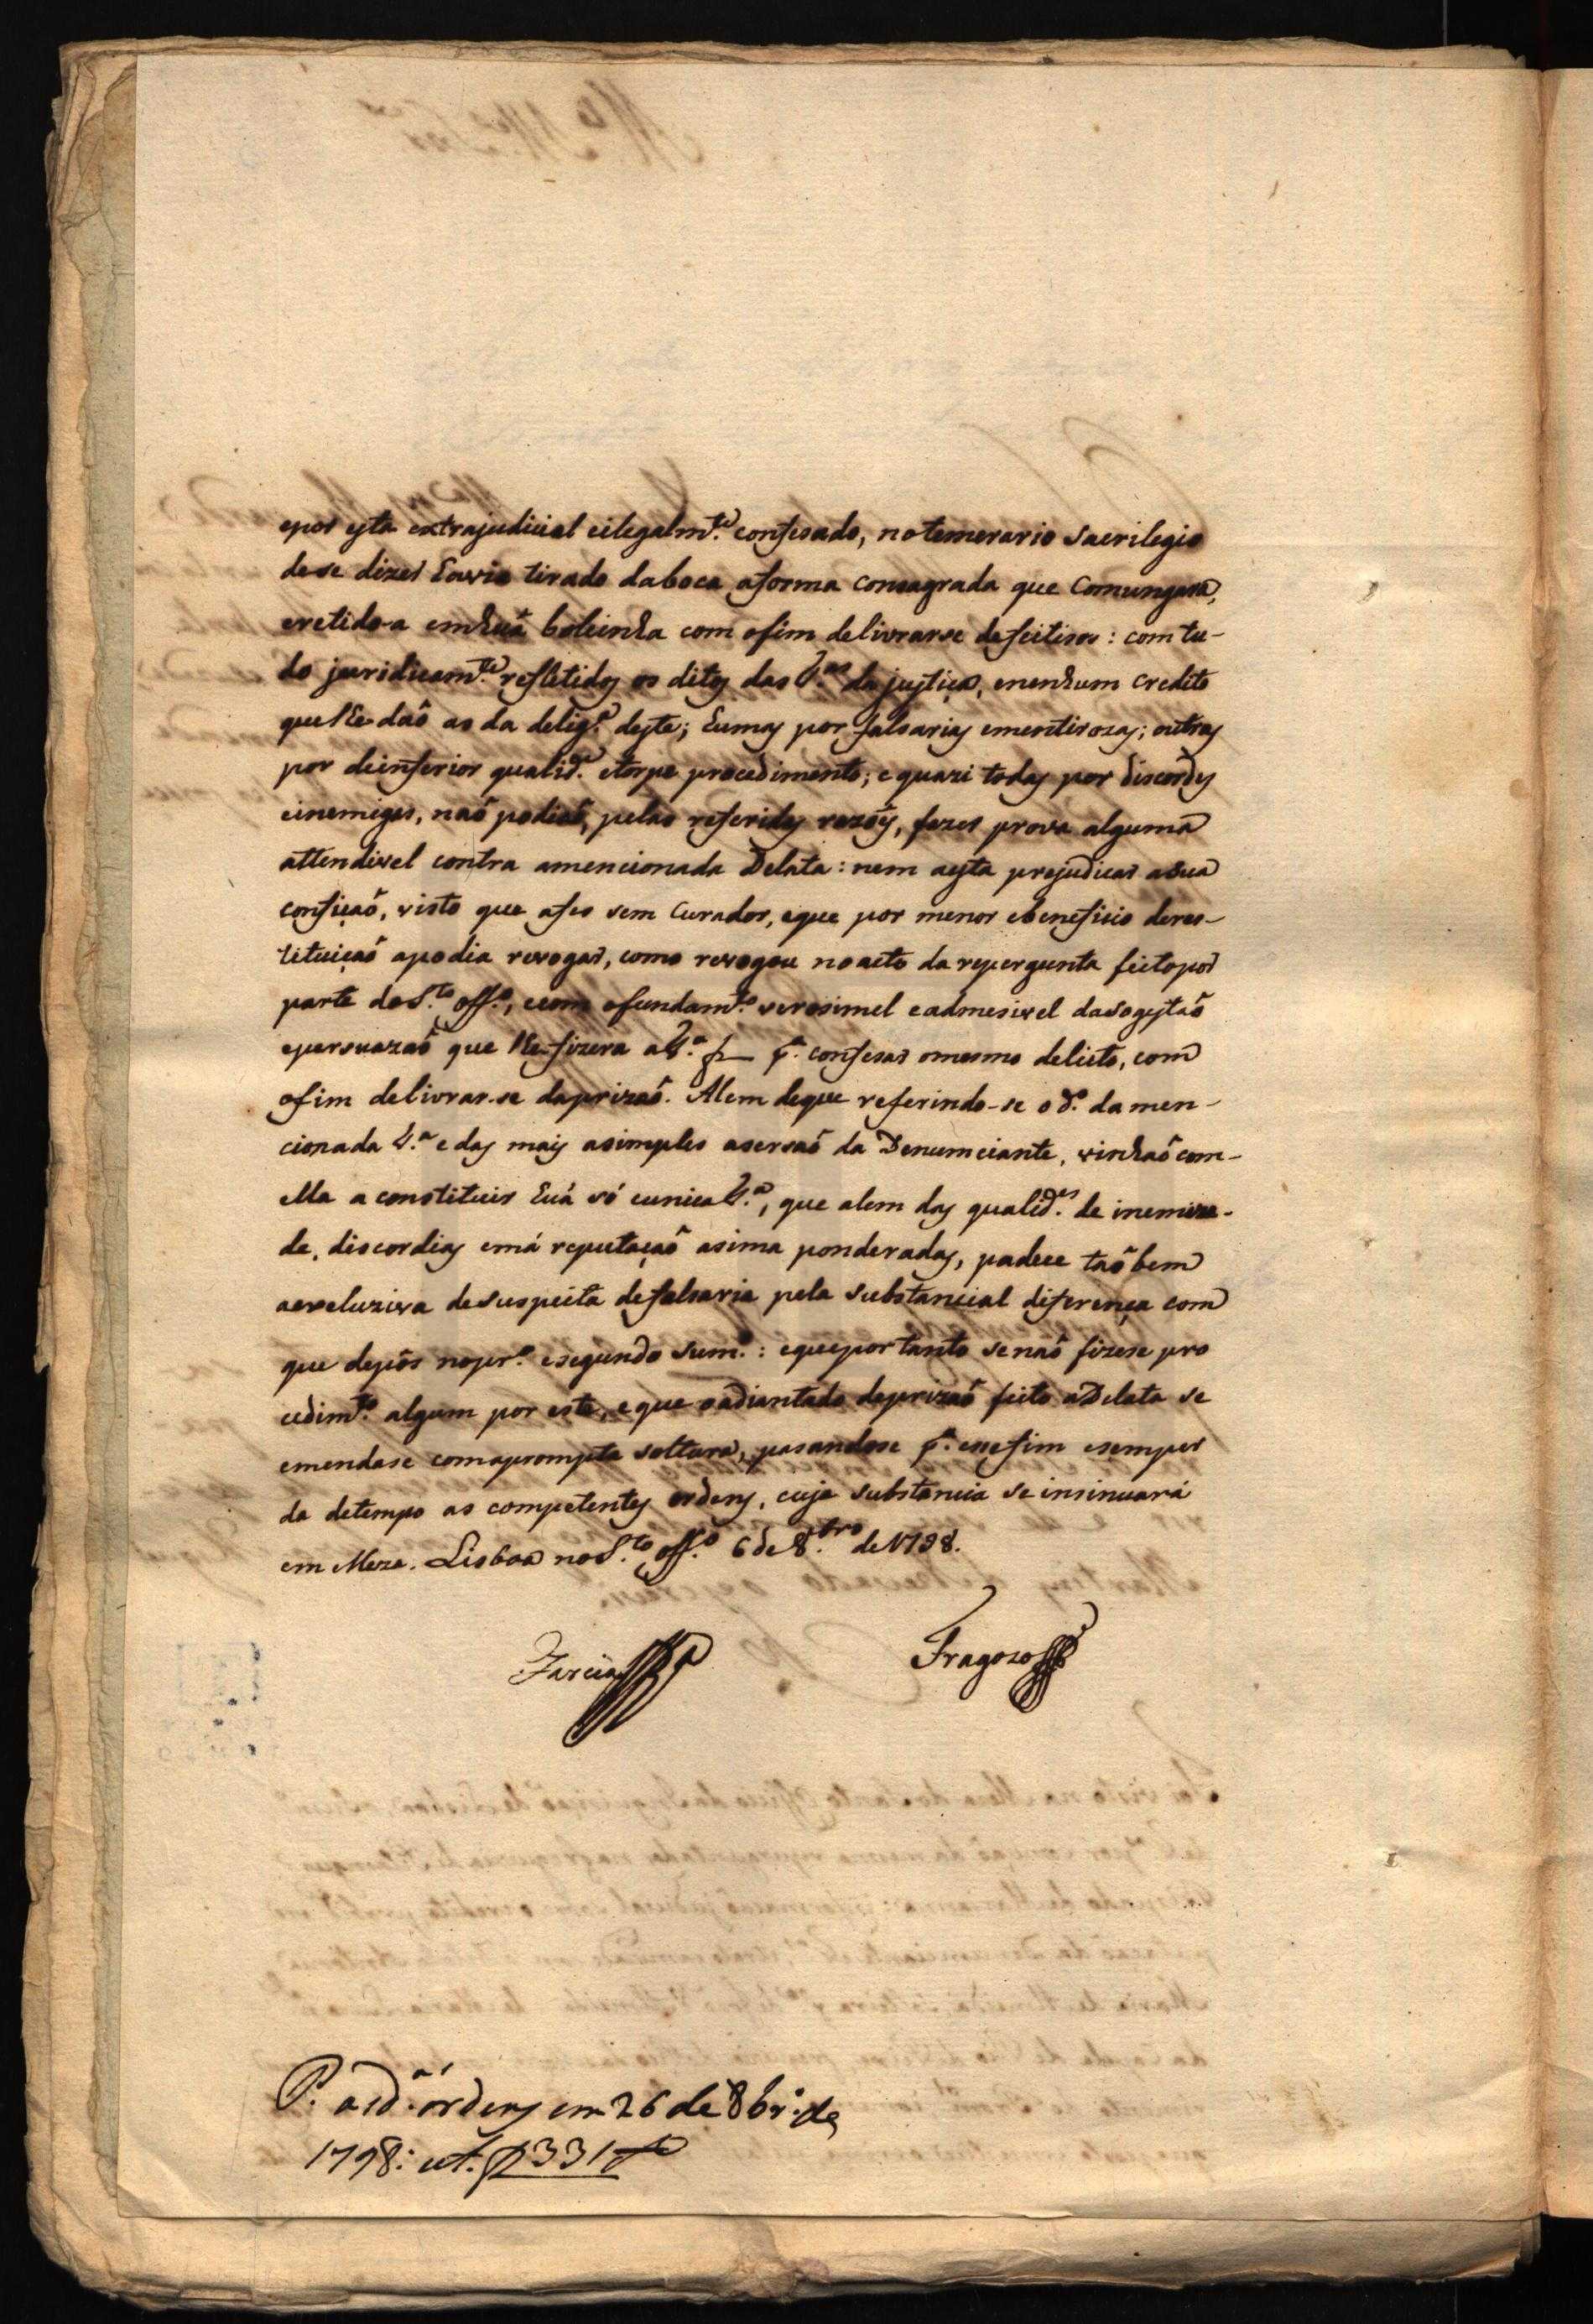 epor esta extrajudicial eilegalm.te confesado, notemerario Sacrilegio
dese dizer havia tirado daboca aforma consagrada que Comungara,
eretido-a emhuã bolcinha com ofim delivrarse defeitisos: com tu-
do juridicam.te refletidos os ditos das T.as da justiça, enenhum credito
que lhe daõ as da delig.a deste; humas por falsarias ementirozas; outras
por deinferior qualid.e etorpe procedimento; e quazi todas por discordes
einemigas, naõ podiaõ, pelas referidas razoẽs, fazer prova alguma
attendivel contra amencionada Delata: nem aesta prejudicar asua
confiçaõ, visto que afes sem Curador, eque por menor ebeneficio deres-
tituiçaõ apodia revogar, como revogou noacto da repergunta feitopor
parte doS.to Off.o, ecom ofundam.to verosimel eadmesivel dasogestaõ
epersuazaõ que lhe fizera aT.a p.a confesar omesmo delicto, com
ofim delivrar-se daprizaõ. Alem deque referindo-se o d.o da men-
cionada T.a e das mais asimples asersaõ da Denumciante, vinhaõ com-
ella a constituir huã só eunica T.a, que alem das qualid.es de inemiza-
de, discordias emá reputaçaõ asima ponderadas, padece taõbem
aexcluziva desuspeita defalsaria pela substancial diferença com
que depôs nopr.o esegundo Sum.o: equeportanto senaõ fizese pro
cedim.to algum por este, e que oadiantado deprizaõ feito aDelata se
emendase comaprompta soltura, pasandose p.a esefim esemper
da detempo as competentes ordens, cuja substancia se insinuará
em Meza. Lisboa noS.to Off.o 6 de 8.bro de 1798.
Garcia Fragozo
P. as d.as ordens em 26 de 8br.o de
1798: ut. f 331